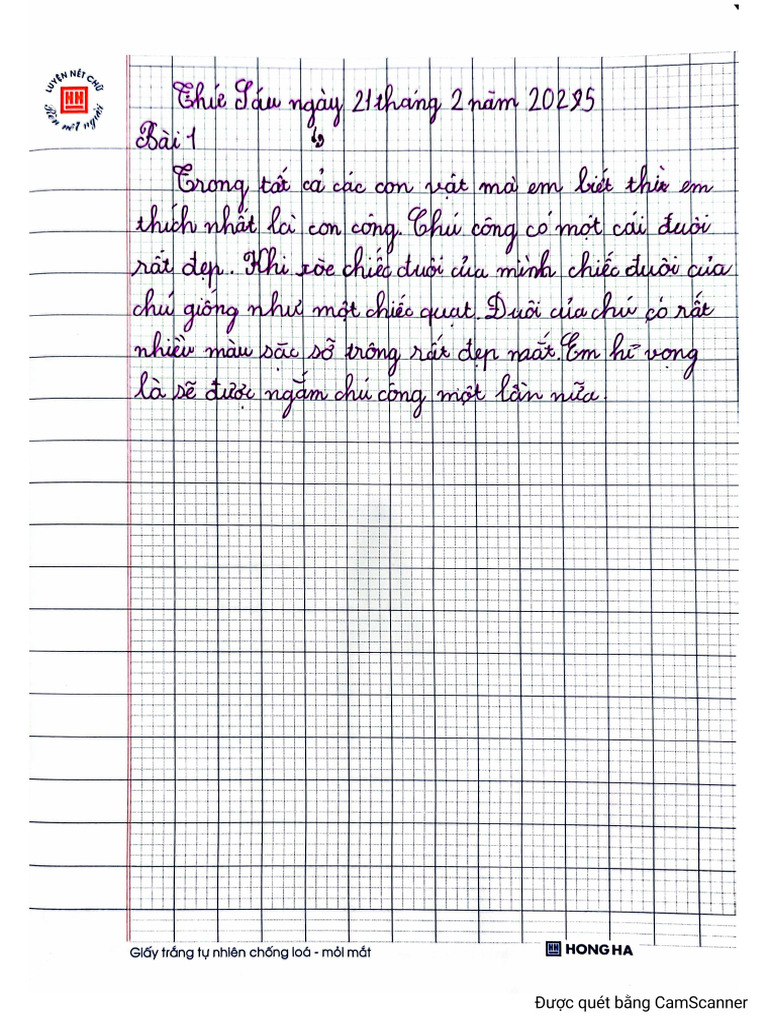 LUYỆN NÉT CHỮ
Rèn nết người
Thứ Sáu ngày 21 tháng 2 năm 2025
Bài 1
Trong tất cả các con vật mà em biết thì em
thích nhất là con công. Chú công có một cái đuôi
rất đẹp. Khi xòe chiếc đuôi của mình chiếc đuôi của
chú giống như một chiếc quạt. Đuôi của chú có rất
nhiều màu sặc sỡ trông rất đẹp mắt. Em hi vọng
là sẽ được ngắm chú công một lần nữa.
Giấy trắng tự nhiên chống loá - mỏi mắt
HONG HA
Được quét bằng CamScanner